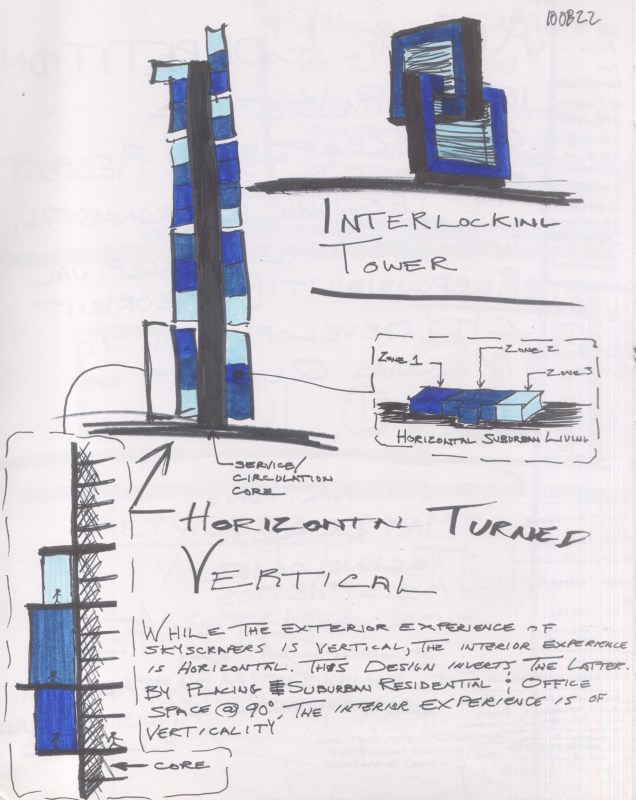 100822
INTERLOCKING
TOWER
ZONE 1
ZONE 2
ZONE 3
HORIZONTAL SUBURBAN LIVING
SERVICE/
CIRCULATION
CORE
HORIZONTAL TURNED
VERTICAL
WHILE THE EXTERIOR EXPERIENCE OF
SKYSCRAPERS IS VERTICAL, THE INTERIOR EXPERIENCE
IS HORIZONTAL. THIS DESIGN INVERTS THE LATTER.
BY PLACING SUBURBAN RESIDENTIAL & OFFICE
SPACE @ 90°, THE INTERIOR EXPERIENCE IS OF
VERTICALITY
CORE